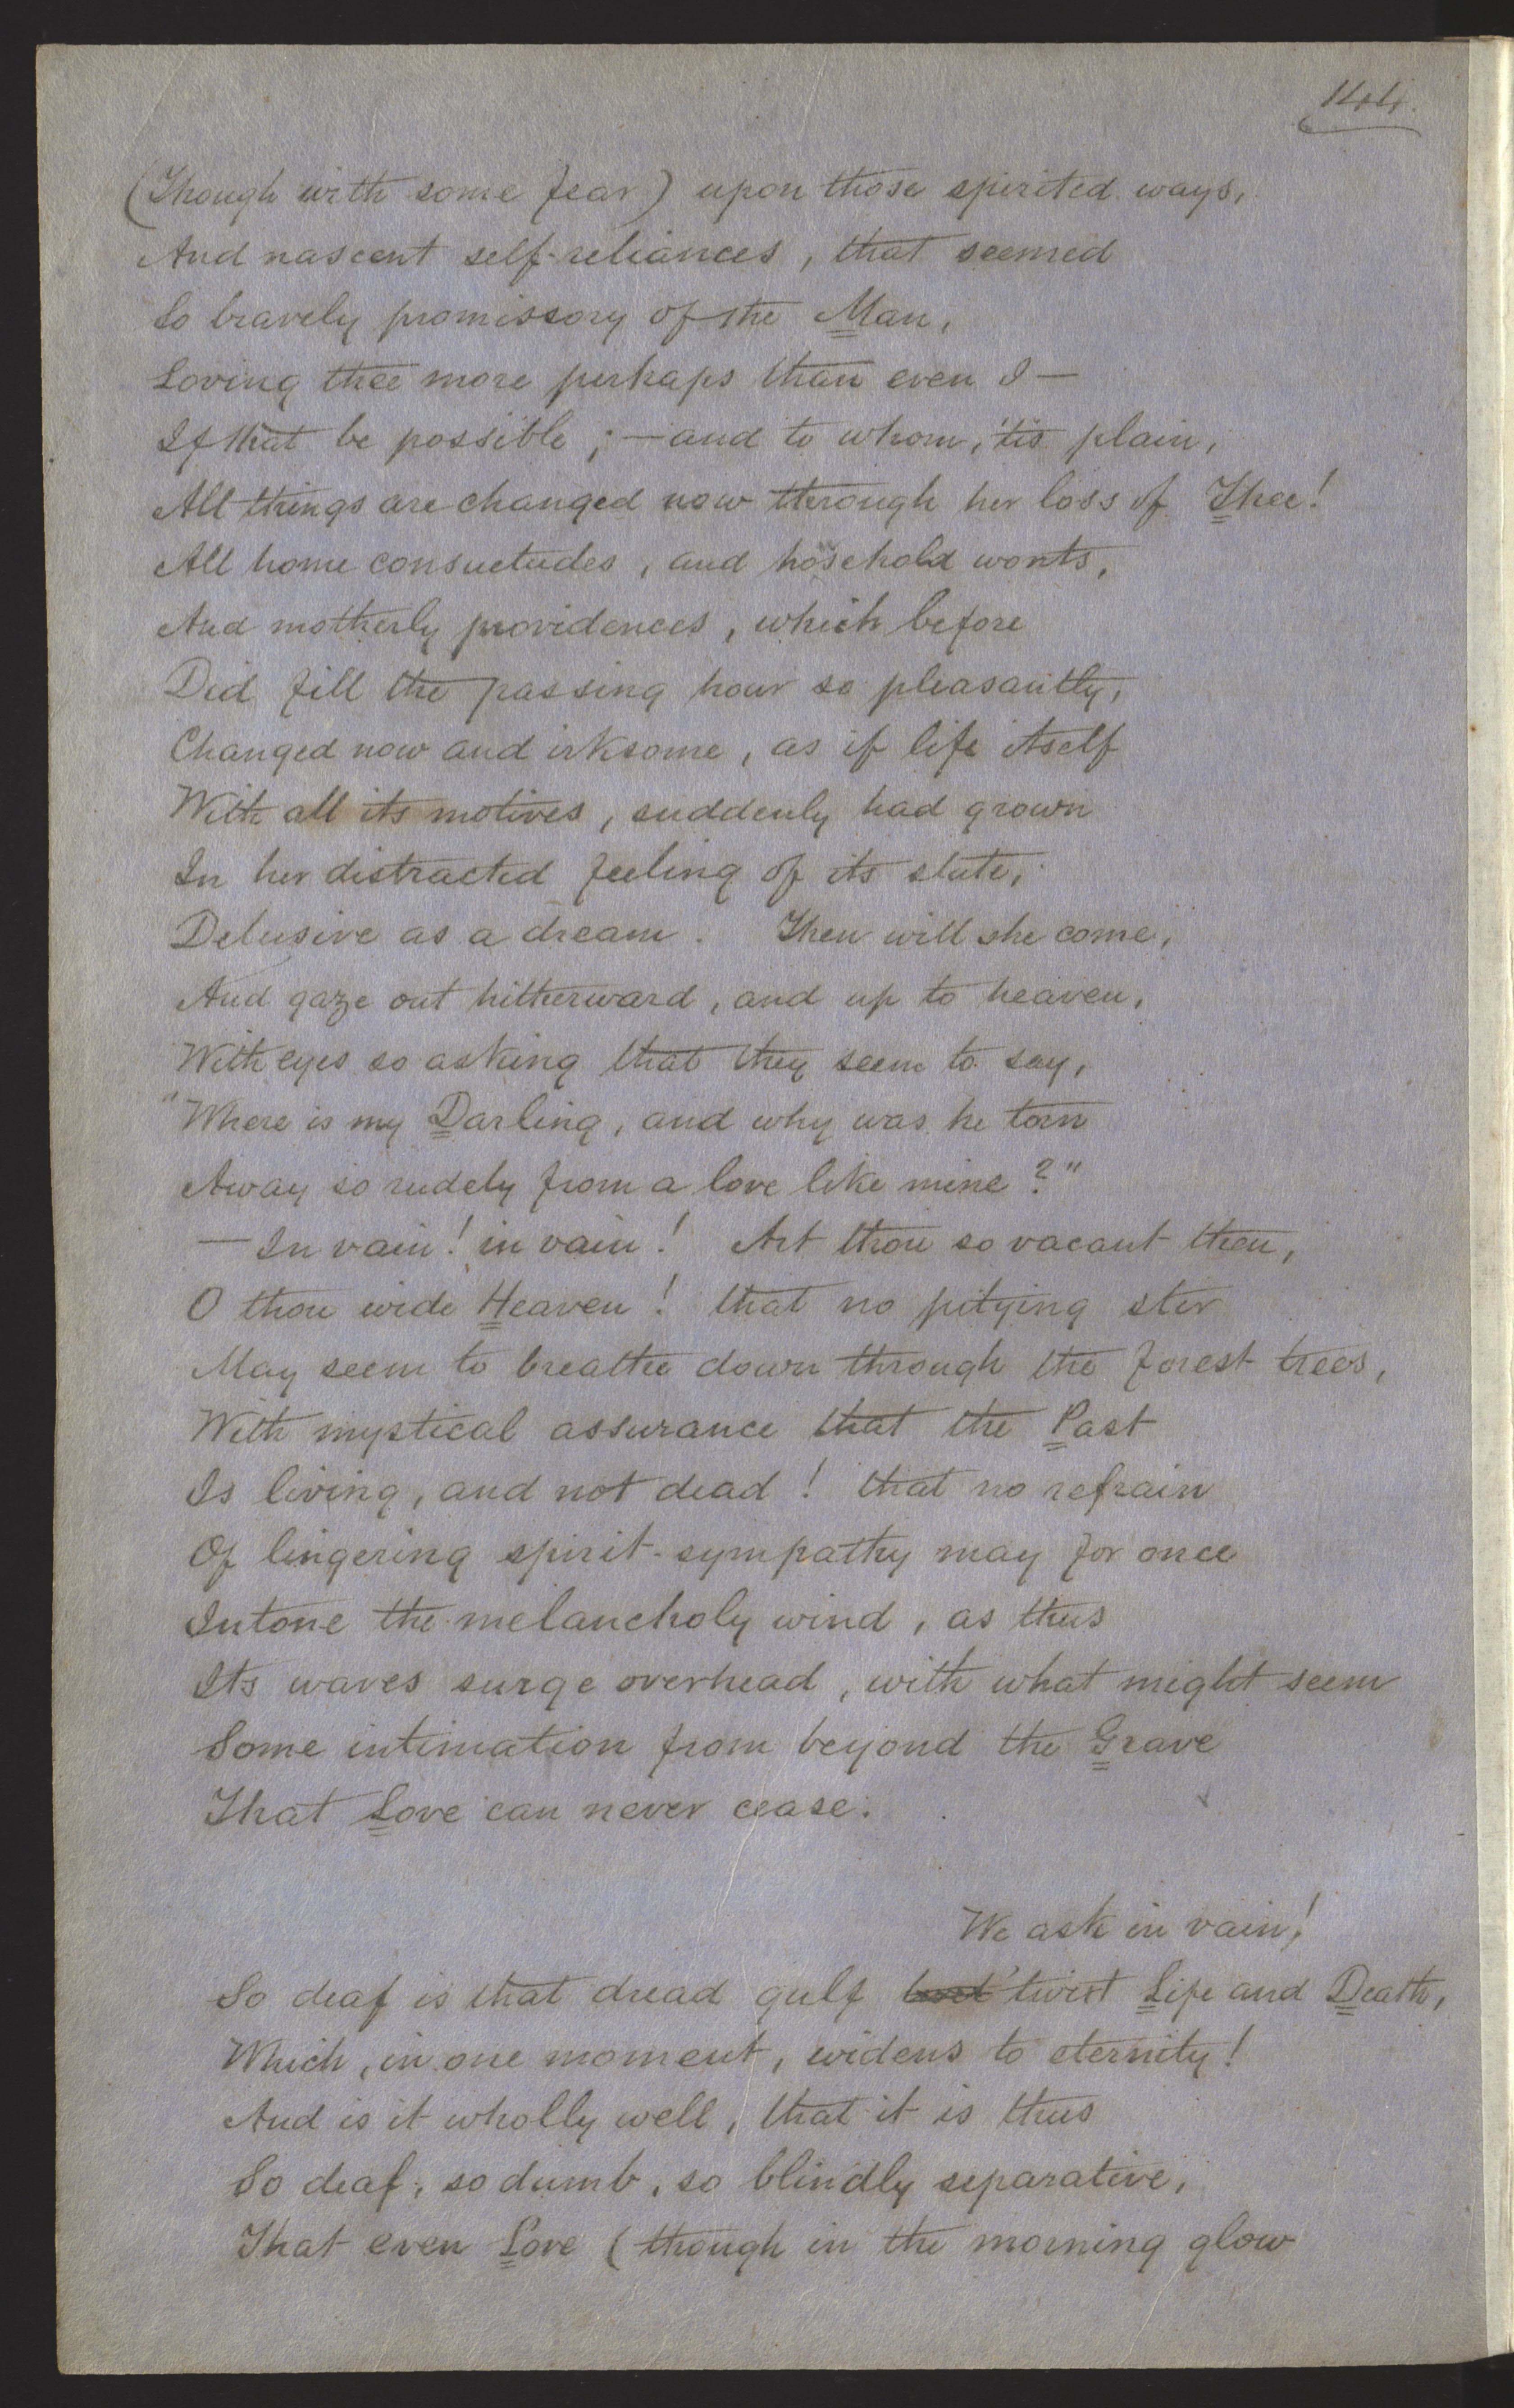 144.
(Though with some fear) upon those spirited ways,
And nascent self-reliances, that seemed
So bravely promissory of the Man,
Loving thee more perhaps than even I—
If that be possible;—and to whom, 'tis plain,
All things are changed now through her loss of Thee!
All home consuetudes, and hosehold wonts,
And motherly providences, which before
Did fill the passing hour so pleasantly,
Changed now and irksome, as if life itself
With all its motives, suddenly had grown
In her distracted feeling of its state,
Delusive as a dream. Then will she come,
And gaze out hitherward, and up to heaven,
With eyes so asking that they seem to say,
"Where is my Darling, and why was he torn
Away so rudely from a love like mine?"
—In vain! in vain! Art thou so vacant then,
O thou wide Heaven! that no pitying stir
May seem to breathe down through the forest trees,
With mystical assurance that the Past
Is living, and not dead! that no refrain
Of lingering spirit-sympathy may for once
Intone the melancholy wind, as thus
Its waves surge overhead, with what might seem
Some intimation from beyond the Grave
That Love can never cease.
We ask in vain!
So deaf is that dread gulf 'twixt Life and Death,
Which, in one moment, widens to eternity!
And is it wholly well, that it is thus
So deaf, so dumb, so blindly separative,
That even Love (though in the morning glow